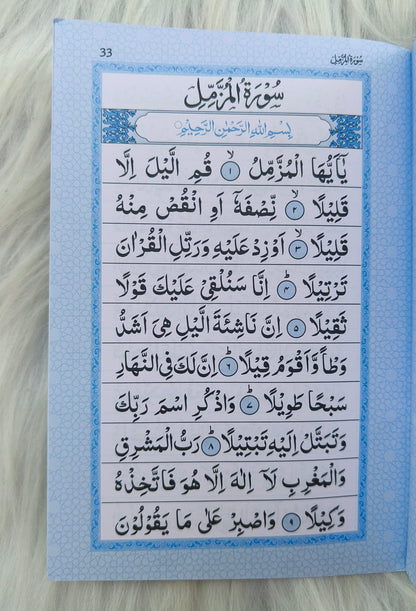 33
سُوْرَةُ الْمُزَّمِّل
سُوْرَةُ الْمُزَّمِّلِ
بِسْمِ اللهِ الرَّحْمٰنِ الرَّحِيْمِ
يٰٓاَيُّهَا الْمُزَّمِّلُ ۙ﴿۱﴾ قُمِ الَّيْلَ اِلَّا
قَلِيْلًا ۙ﴿۲﴾ نِّصْفَهٗٓ اَوِ انْقُصْ مِنْهُ
قَلِيْلًا ۙ﴿۳﴾ اَوْ زِدْ عَلَيْهِ وَرَتِّلِ الْقُرْاٰنَ
تَرْتِيْلًا ؕ﴿۴﴾ اِنَّا سَنُلْقِيْ عَلَيْكَ قَوْلًا
ثَقِيْلًا ﴿۵﴾ اِنَّ نَاشِئَةَ الَّيْلِ هِيَ اَشَدُّ
وَطْاً وَّاَقْوَمُ قِيْلًا ؕ﴿۶﴾ اِنَّ لَكَ فِي النَّهَارِ
سَبْحًا طَوِيْلًا ؕ﴿۷﴾ وَاذْكُرِ اسْمَ رَبِّكَ
وَتَبَتَّلْ اِلَيْهِ تَبْتِيْلًا ؕ﴿۸﴾ رَبُّ الْمَشْرِقِ
وَالْمَغْرِبِ لَآ اِلٰهَ اِلَّا هُوَ فَاتَّخِذْهُ
وَكِيْلًا ﴿۹﴾ وَاصْبِرْ عَلٰى مَا يَقُوْلُوْنَ